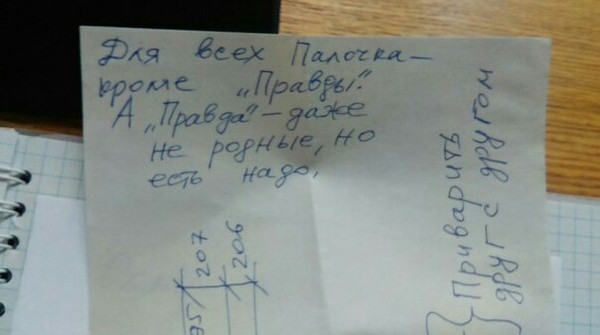 Для всех Палочка —
кроме „Правды".
А „Правда" — даже
не родные, но
есть надо.
207
206
Приварить
друг с другом